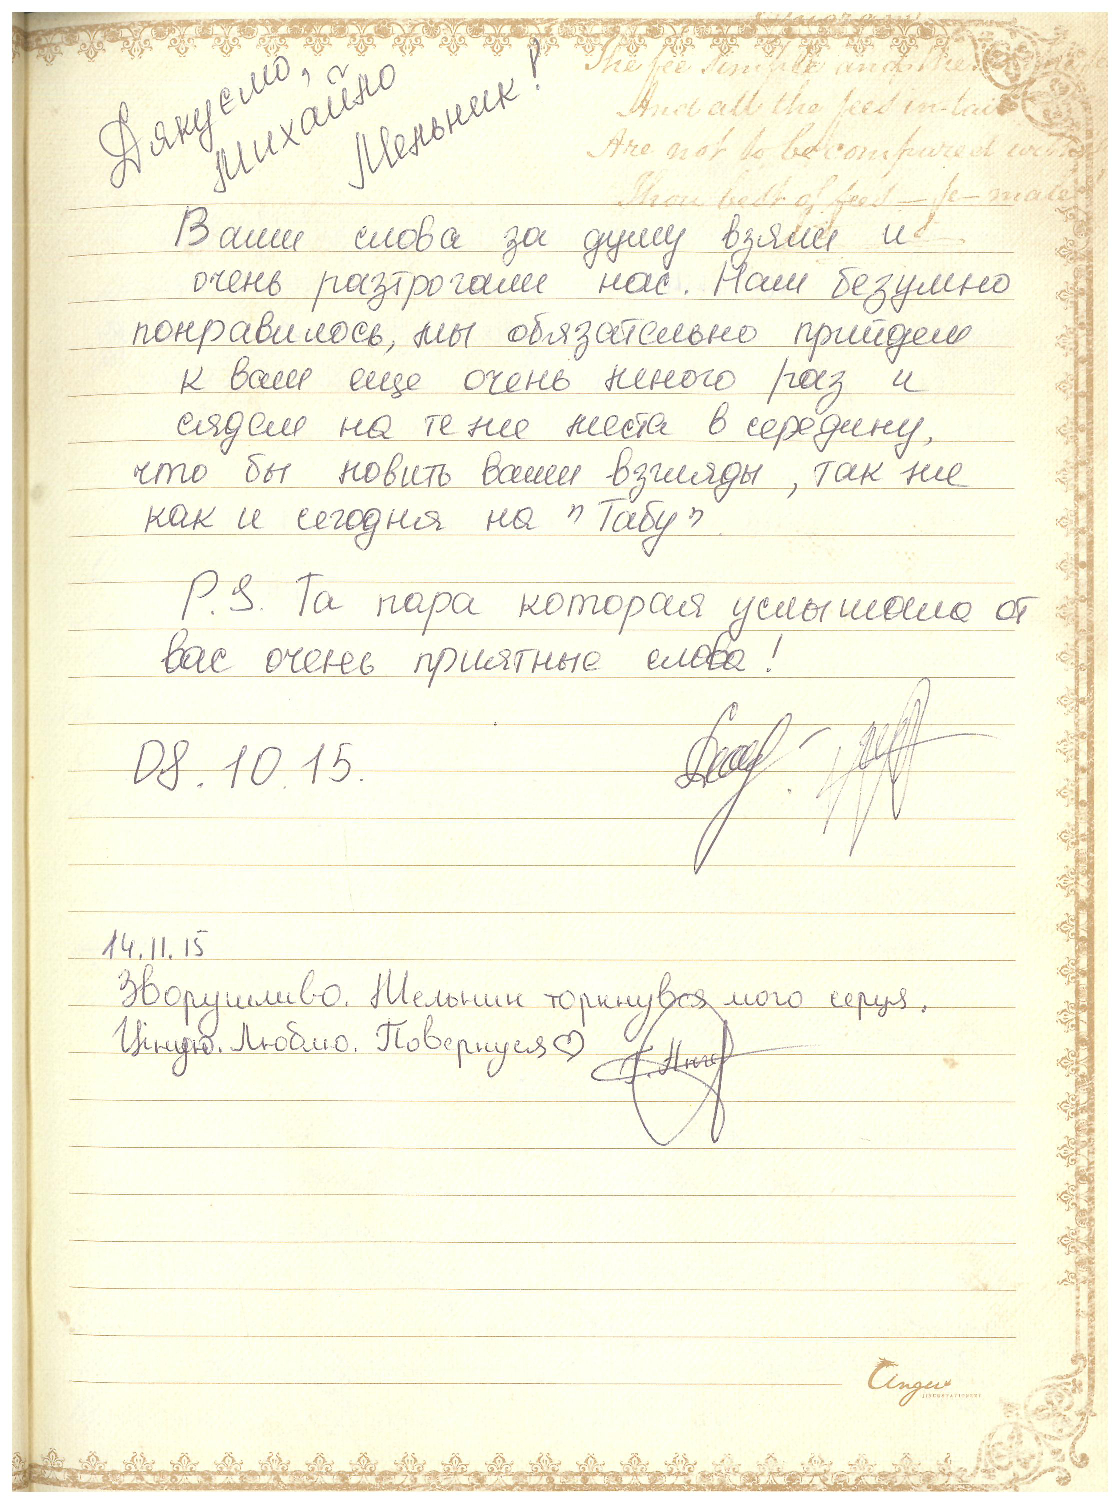 Дякуємо,
Михайло
Мельник!
The fee simple and the
And all the fees in-tail
Are not to be compared with
Thou best of fees — fe-male!
Ваши слова за душу взяли и
очень разтрогали нас. Нам безумно
понравилось, мы обязательно прийдем
к вам еще очень много раз и
сядем на те же места в середину,
что бы ловить ваши взгляды, так же
как и сегодня на "Табу"
P.S. Та пара которая услышала от
вас очень приятные слова!
08.10.15.
14.11.15
Зворушливо. Мельник торкнувся мого серця.
Ціную. Люблю. Повернуся♡